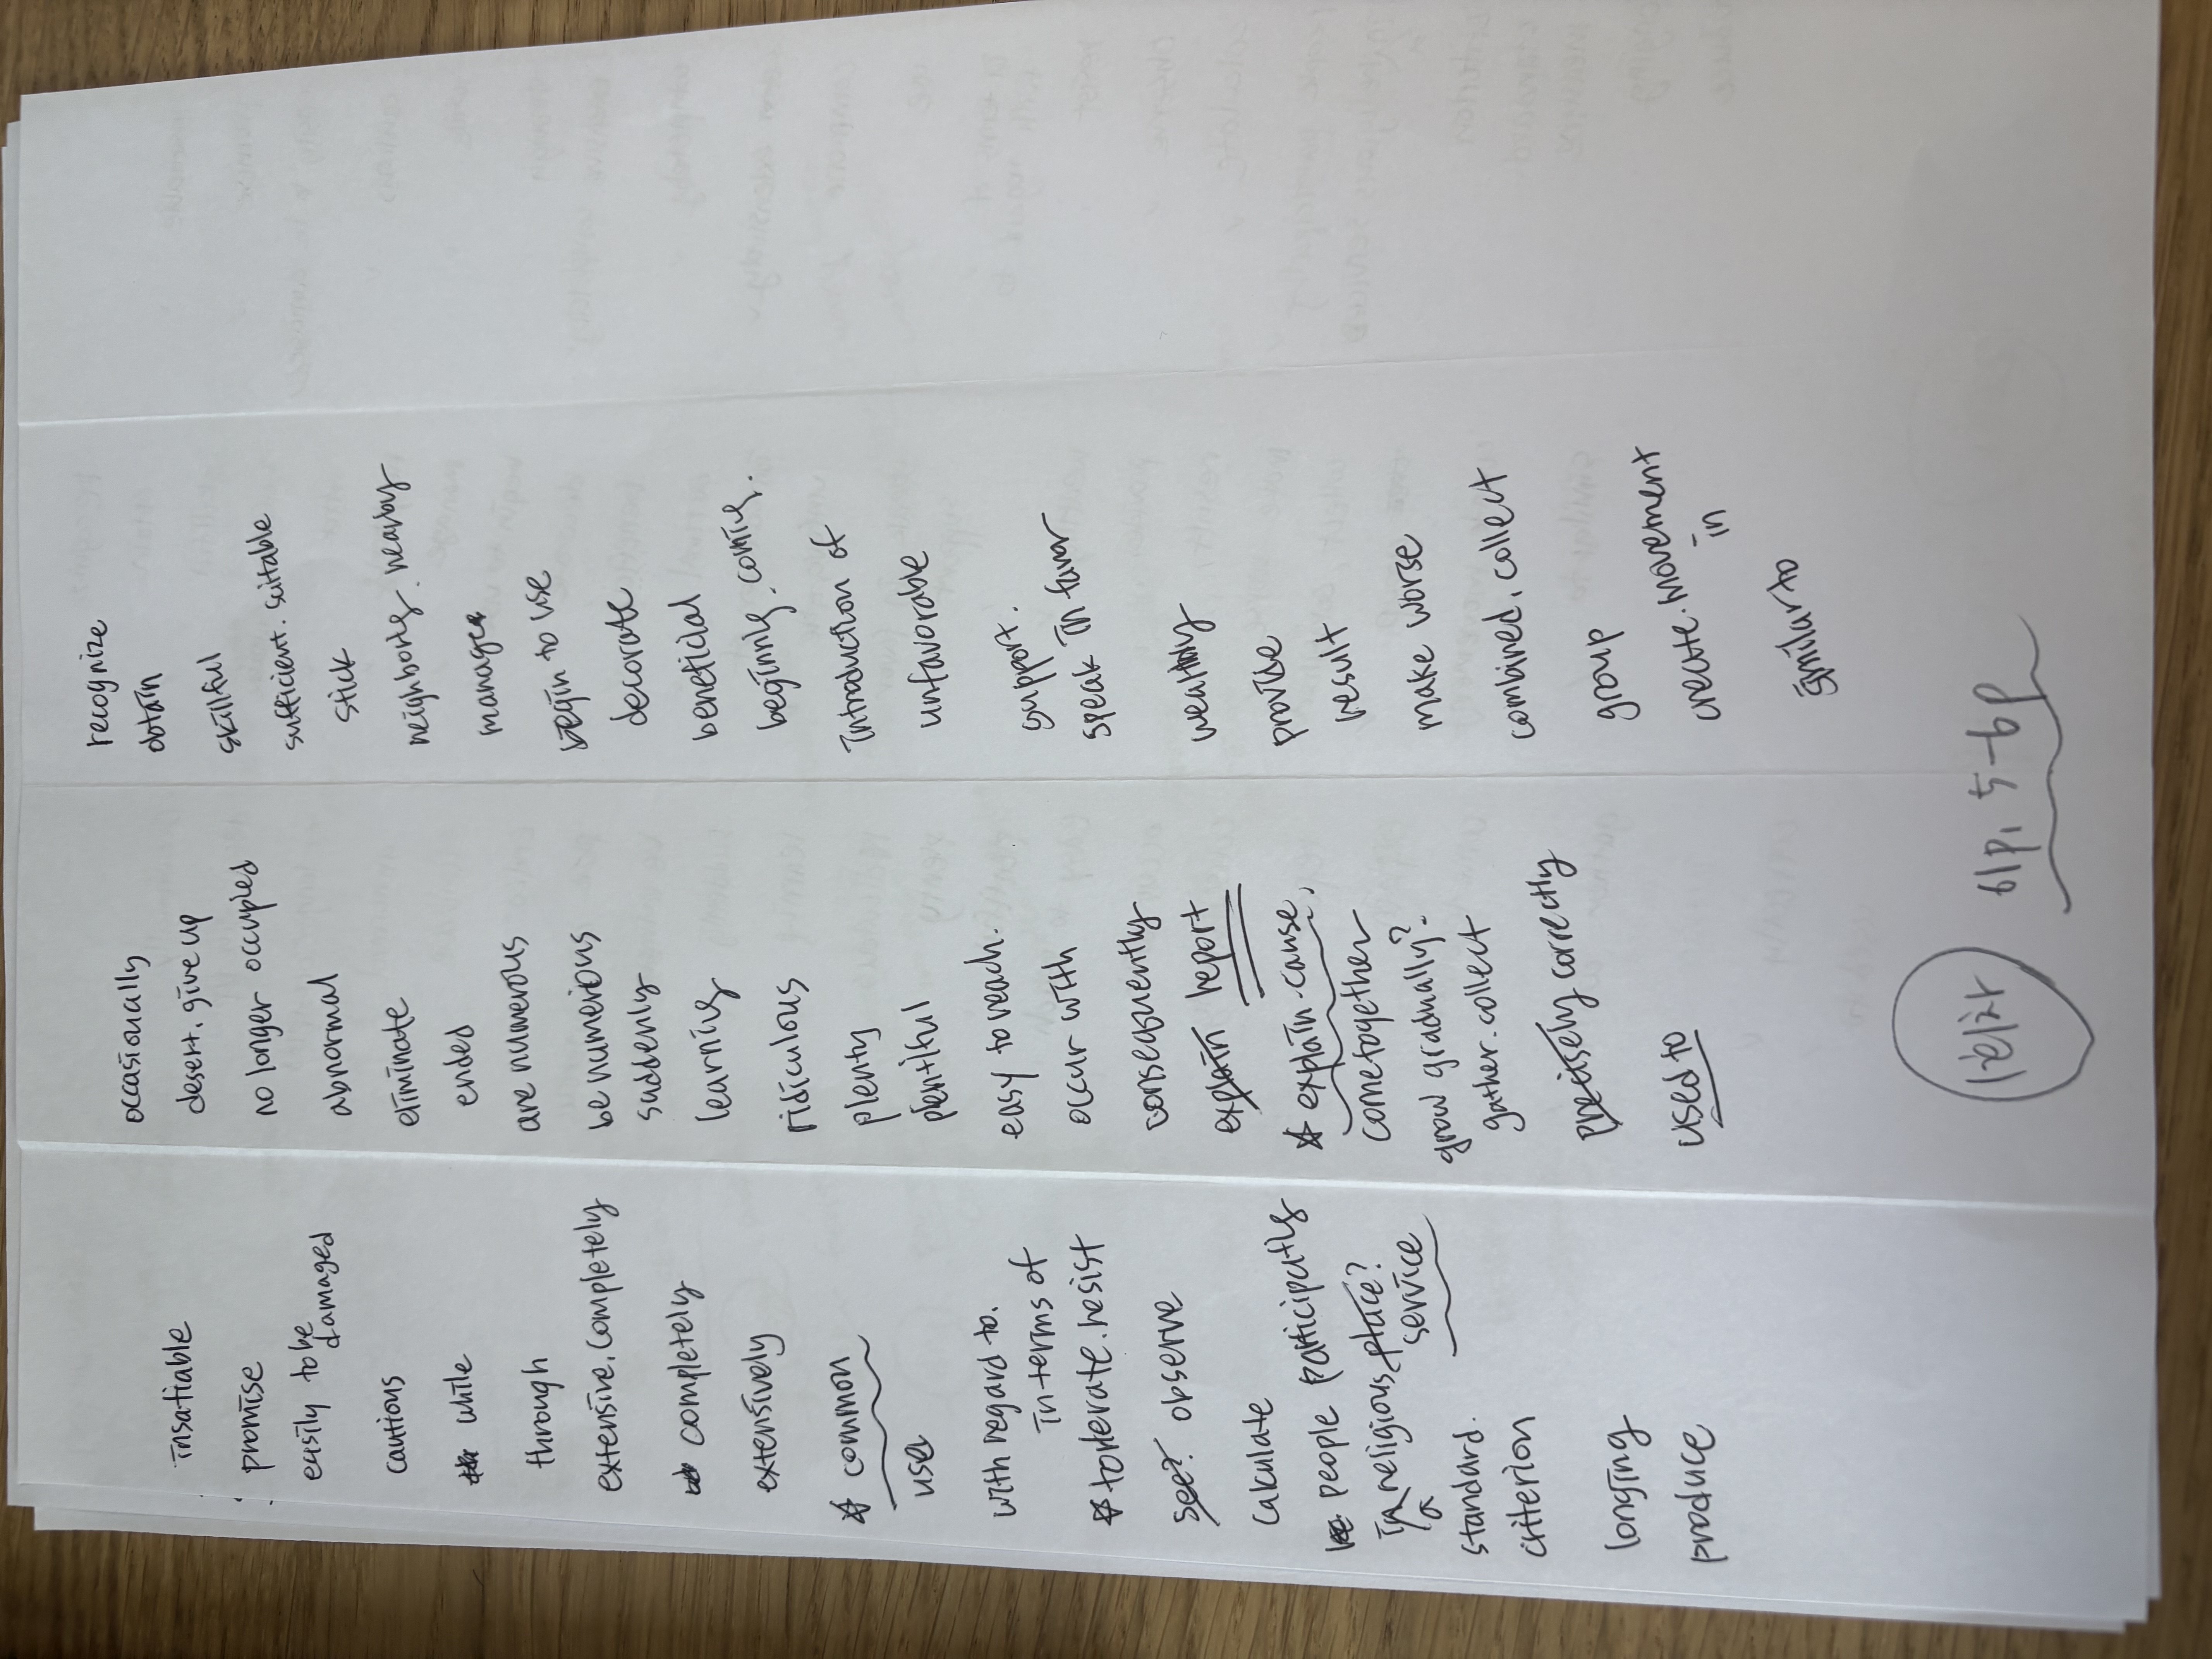 insatiable
promise
easily to be
damaged
cautious
while
through
extensive. completely
completely
extensively
☆ common
use
with regard to.
in terms of
☆ tolerate. resist
see? observe
calculate
people participating
in religious place?
service
standard.
criterion
longing
produce
occasionally
desert. give up
no longer occupied
abnormal
eliminate
ended
are numerous
be numerious
suddenly
learning
ridiculous
plenty
plentiful
easy to reach.
occur with
consequently
explain report
☆ explain. cause.
come together
grow gradually?
gather. collect
precisely correctly
used to
recognize
obtain
skillful
sufficient. suitable
stick
neighboring. nearby
manage
begin to use
decorate
beneficial
beginning. coming.
introduction of
unfavorable
support.
speak in favor
wealthy
provide
result
make worse
combined. collect
group
create. movement
in
similar to